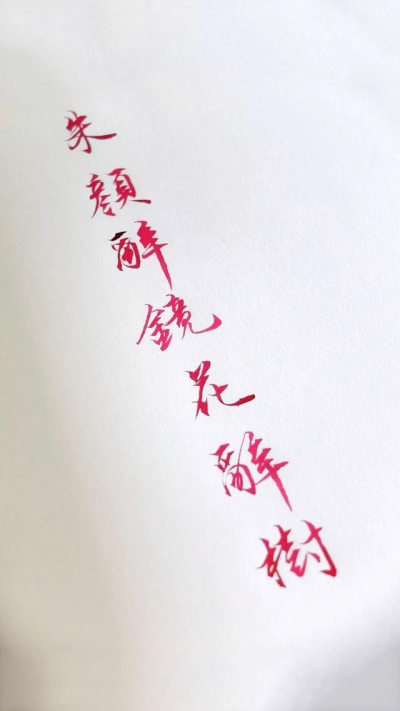 朱顏辭鏡花辭樹